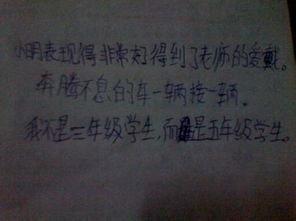 小明表现得非常好得到了老师的爱戴。
奔腾不息的车一辆接一辆。
我不是三年级学生,而是五年级学生。